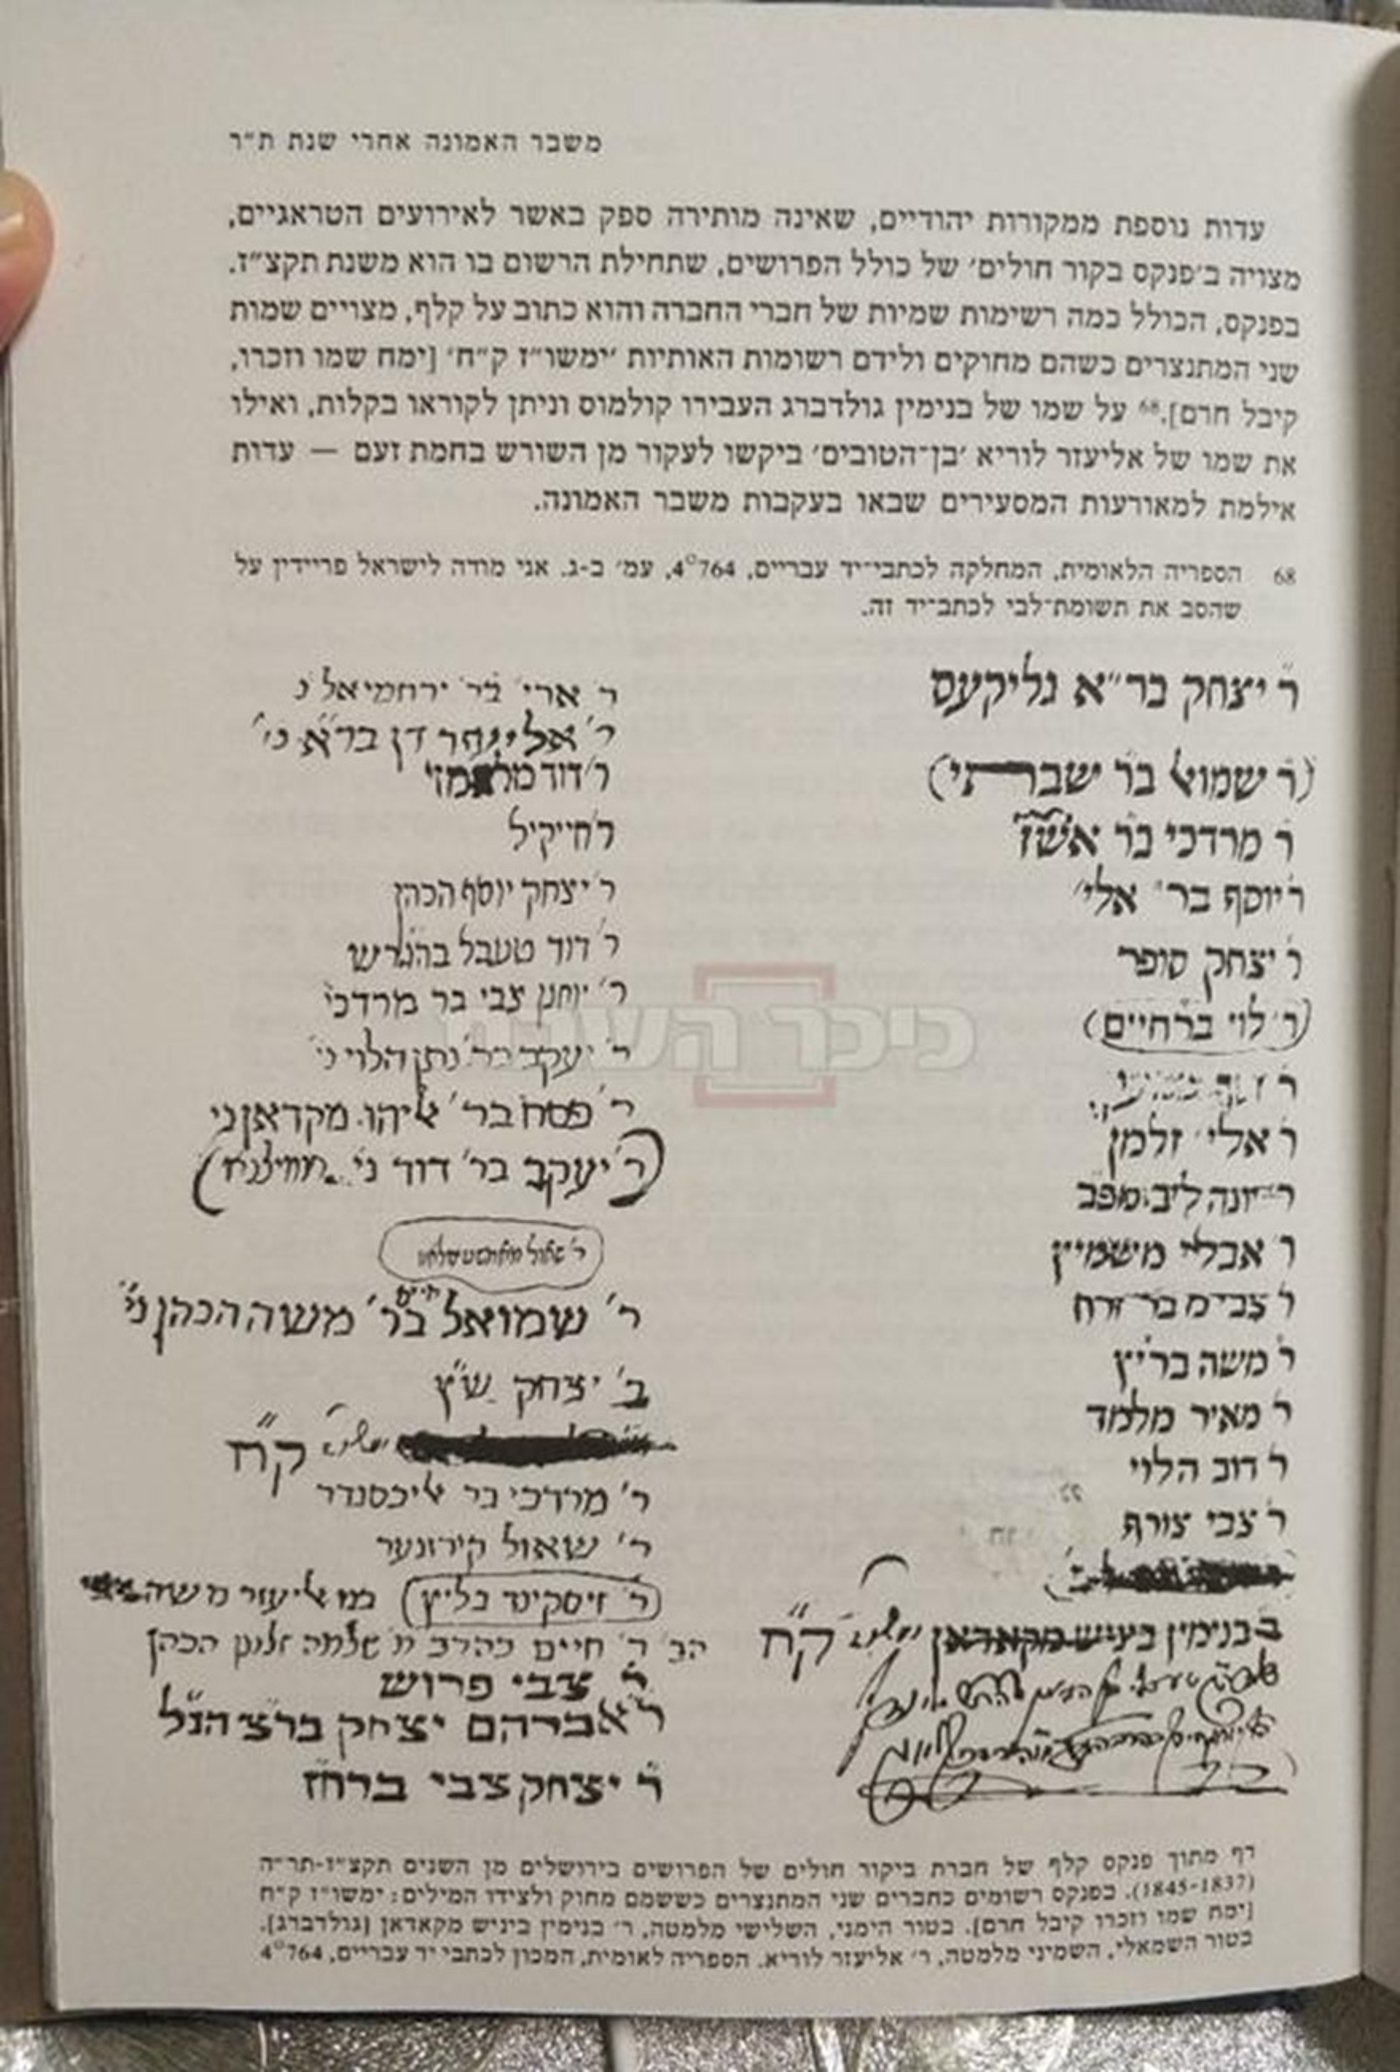 משבר האמונה אחרי שנת ת״ר
עדות נוספת ממקורות יהודיים, שאינה מותירה ספק באשר לאירועים הטראגיים,
מצויה ב׳פנקס בקור חולים׳ של כולל הפרושים, שתחילת הרשום בו הוא משנת תקצ״ז.
בפנקס, הכולל כמה רשימות שמיות של חברי החברה והוא כתוב על קלף, מצויים שמות
שני המתנצרים כשהם מחוקים ולידם רשומות האותיות ׳ימשו״ז ק״ח׳ [ימח שמו וזכרו,
קיבל חרם].68 על שמו של בנימין גולדברג העבירו קולמוס וניתן לקוראו בקלות, ואילו
את שמו של אליעזר לוריא ׳בן־הטובים׳ ביקשו לעקור מן השורש בחמת זעם — עדות
אילמת למאורעות המסעירים שבאו בעקבות משבר האמונה.
68 הספריה הלאומית, המחלקה לכתבי־יד עבריים, 4°764, עמ׳ ב-ג. אני מודה לישראל פריידין על
שהסב את תשומת־לבי לכתב־יד זה.
ר׳ יצחק בר״א גליקעס
(ר׳ שמואל בר׳ שברתי)
ר׳ מרדכי בר׳
ר׳ יוסף בר׳ אלי׳
ר׳ יצחק סופר
(ר׳ לוי בר׳ חיים)
ר׳ אלי׳ זלמן
ר׳ יונה ליב
ר׳ אבלי
ר׳ משה
ר׳ מאיר מלמד
ר׳ דוב הלוי
ר׳ צבי צורף
ר׳ בנימין ביניש מקאדאן ק״ח
ר׳ ארי׳ בר׳ ירחמיאל נ׳
ר׳ דוד
ר׳ חייקיל
ר׳ יצחק יוסף הכהן
ר׳ דוד טעבל
ר׳ יוחנן צבי בר מרדכי
ר׳ יעקב בר׳ נתן הלוי ני׳
ר׳ פסח בר׳ אליהו מקדאן ני׳
(ר׳ יעקב בר׳ דוד ני׳
ר׳ שאול
ר׳ שמואל חיים בר׳ משה הכהן ני״
ב׳ יצחק ש״ץ
ק״ח
ר׳ מרדכי בר אליכסנדר
ר׳ שאול קירזנער
ר׳ זיסקינד בליץ
הר׳ ר׳ חיים בהרב הכהן
ר׳ צבי פרוש
ר׳ אברהם יצחק הנ״ל
ר׳ יצחק צבי
כיכר השבת
דף מתוך פנקס קלף של חברת ביקור חולים של הפרושים בירושלים מן השנים תקצ״ז-תר״ה
(1845-1837). בפנקס רשומים כחברים שני המתנצרים כששמם מחוק ולצידו המילים: ימשו״ז ק״ח
[ימח שמו וזכרו קיבל חרם]. בטור הימני, השלישי מלמטה, ר׳ בנימין ביניש מקאדאן [גולדברג].
בטור השמאלי, השמיני מלמטה, ר׳ אליעזר לוריא. הספריה לאומית, המכון לכתבי יד עבריים, 4°764